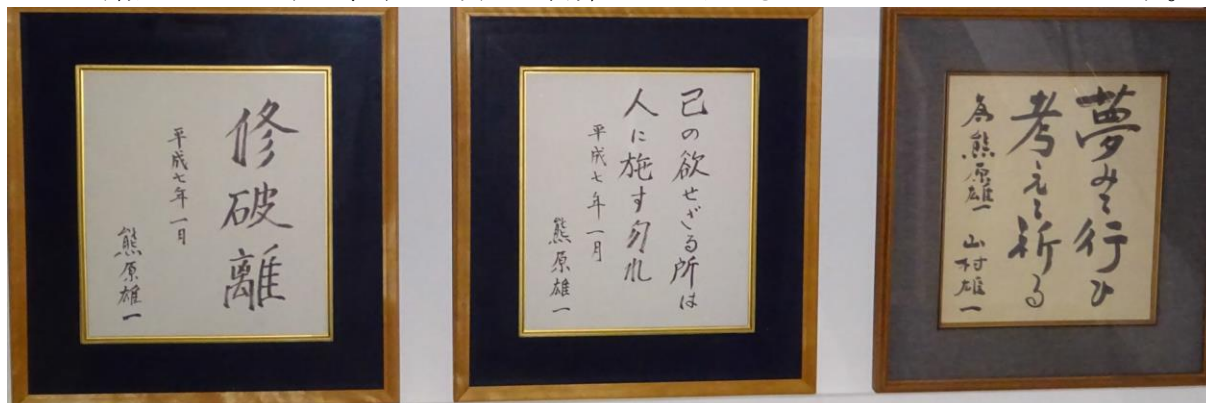 修破離
平成七年一月
熊原雄一
己の欲せざる所は
人に施す勿れ
平成七年一月
熊原雄一
夢みて行ひ
考えて祈る
為熊原雄一 山村雄一